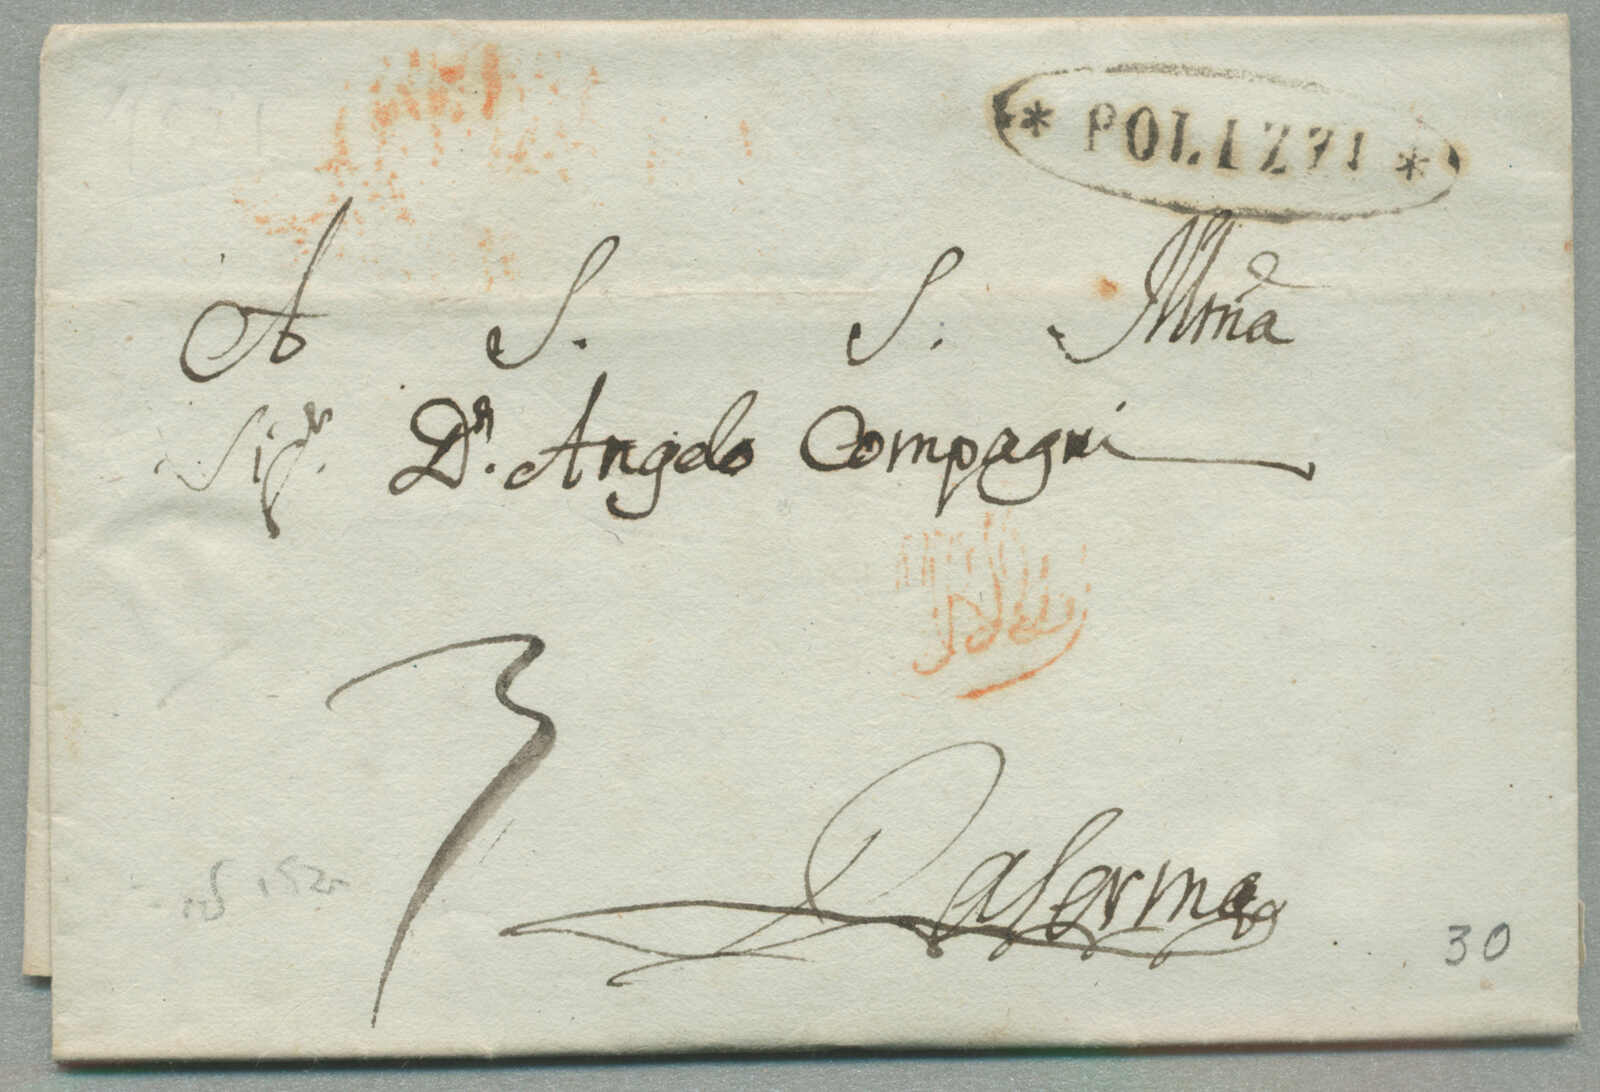 * POLIZZI *
A S. S. Illma
Sigr. Dn. Angelo Compagni
3
Palermo
30